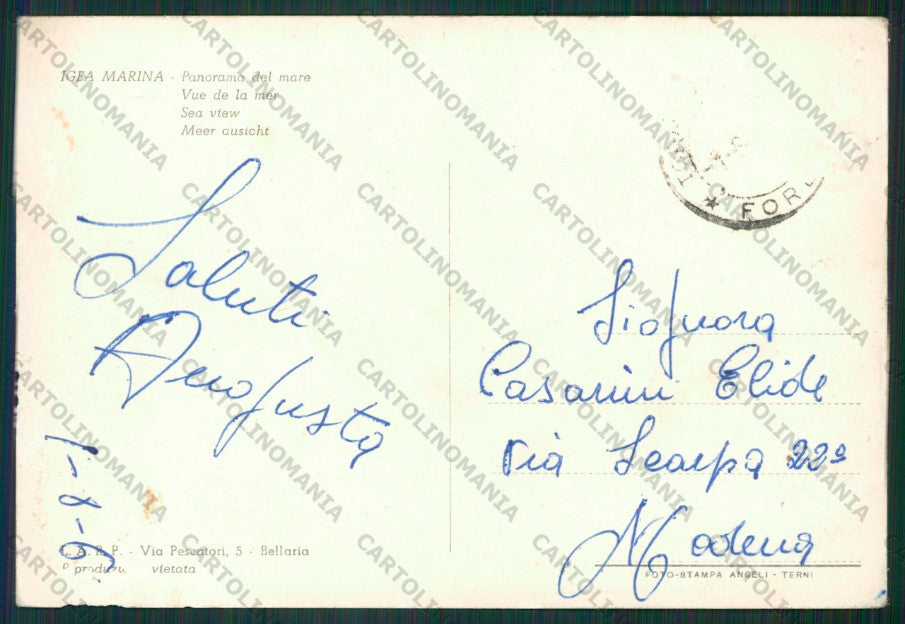 IGEA MARINA - Panorama del mare
Vue de la mer
Sea view
Meer ausicht
Saluti
Augusta
FOR
Signora
Casarini Elide
Via Scarpa 22
Modena
Via Pescatori, 5 - Bellaria
vietata
FOTO-STAMPA ANGELI - TERNI
CARTOLINOMANIA